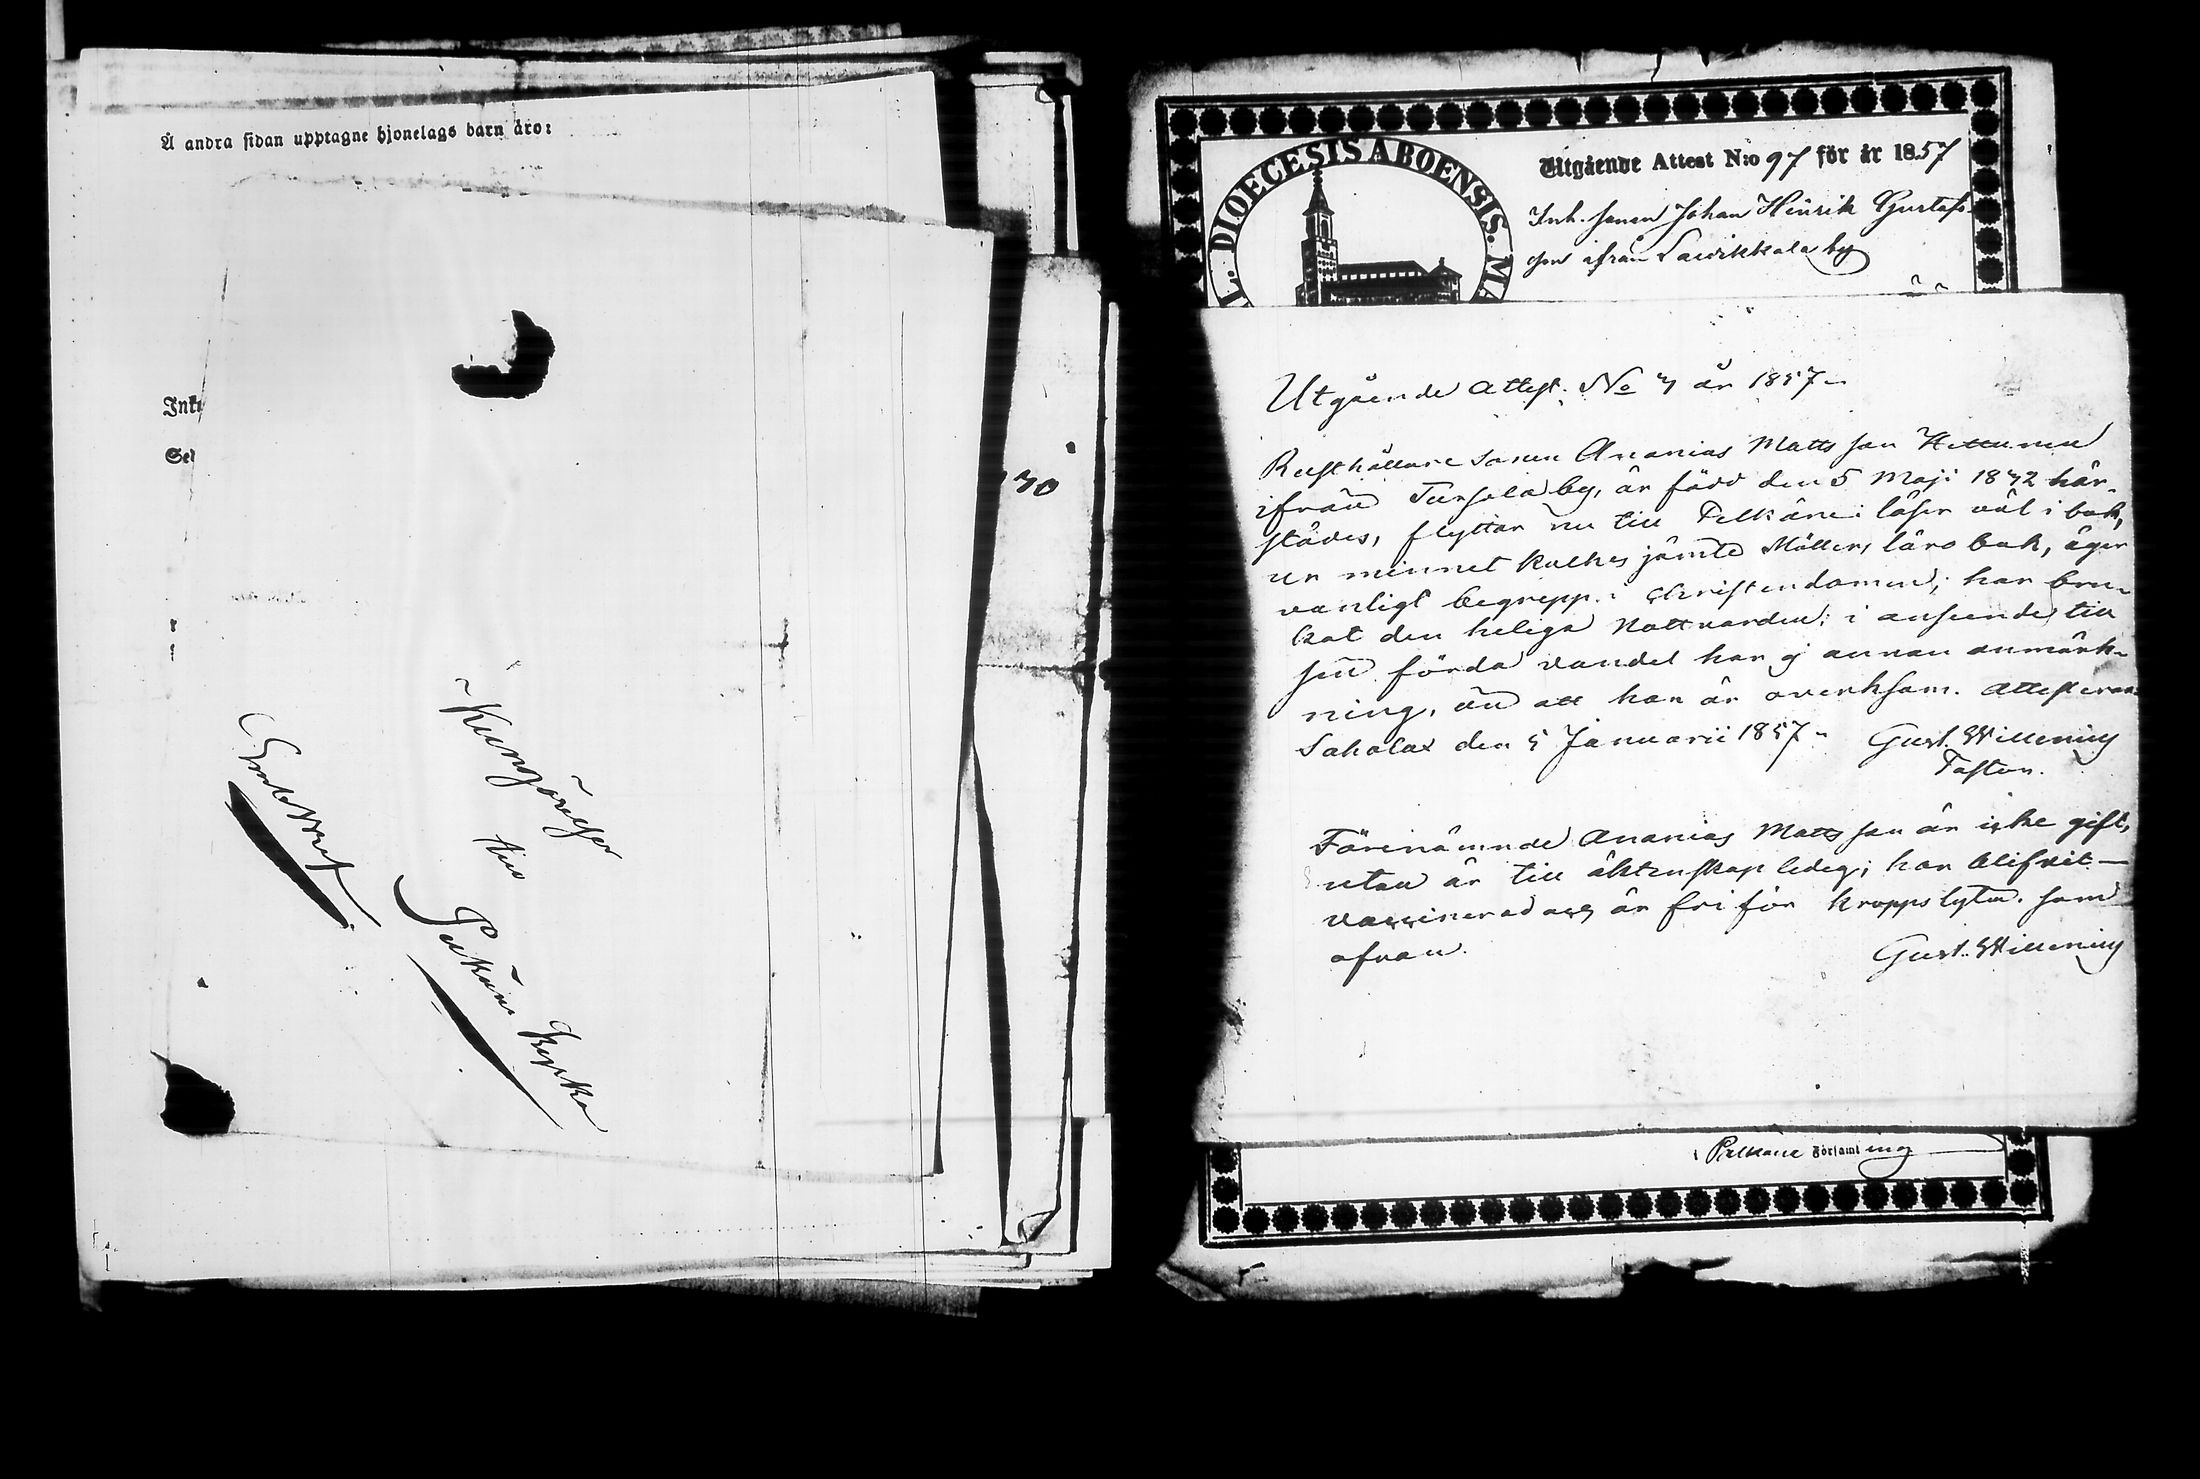 Å andra sidan upptagne hjonelags barn äro:
Ink
Sed
Kungörelse
till
Pelkäne Kyrka
30
L. DIOECESIS ABOENSIS. MA
Utgående Attest N:o 97 för år 1857
Inh. sonen Johan Henrik Gustafs-
son ifrån Sawikkala by
Utgående Attest. No 4 år 1857
Rusthållare sonen Ananias Mattsson
ifrån Tursola by, är född den 5 Maji 1842 här-
städes, flyttar nu till Pelkäne; läser väl i bok,
ur minnet kathes jämte Möllers läro bok, äger
vanligt begrepp i Christendomen; har bru-
kat den heliga Nattvarden; i anseende till
sin förda vandel har ej annan anmärk-
ning, än att han är overksam. Attesterar
Sahalax den 5 Januarii 1857 Gust. Willenius
Pastor.
Förenämnde Ananias Mattsson är icke gift,
utan är till äktenskap ledig; har blifvit
vaccinerad och är fri för kroppslyten. som
ofvan. Gust. Willenius
i Pelkäne Församling